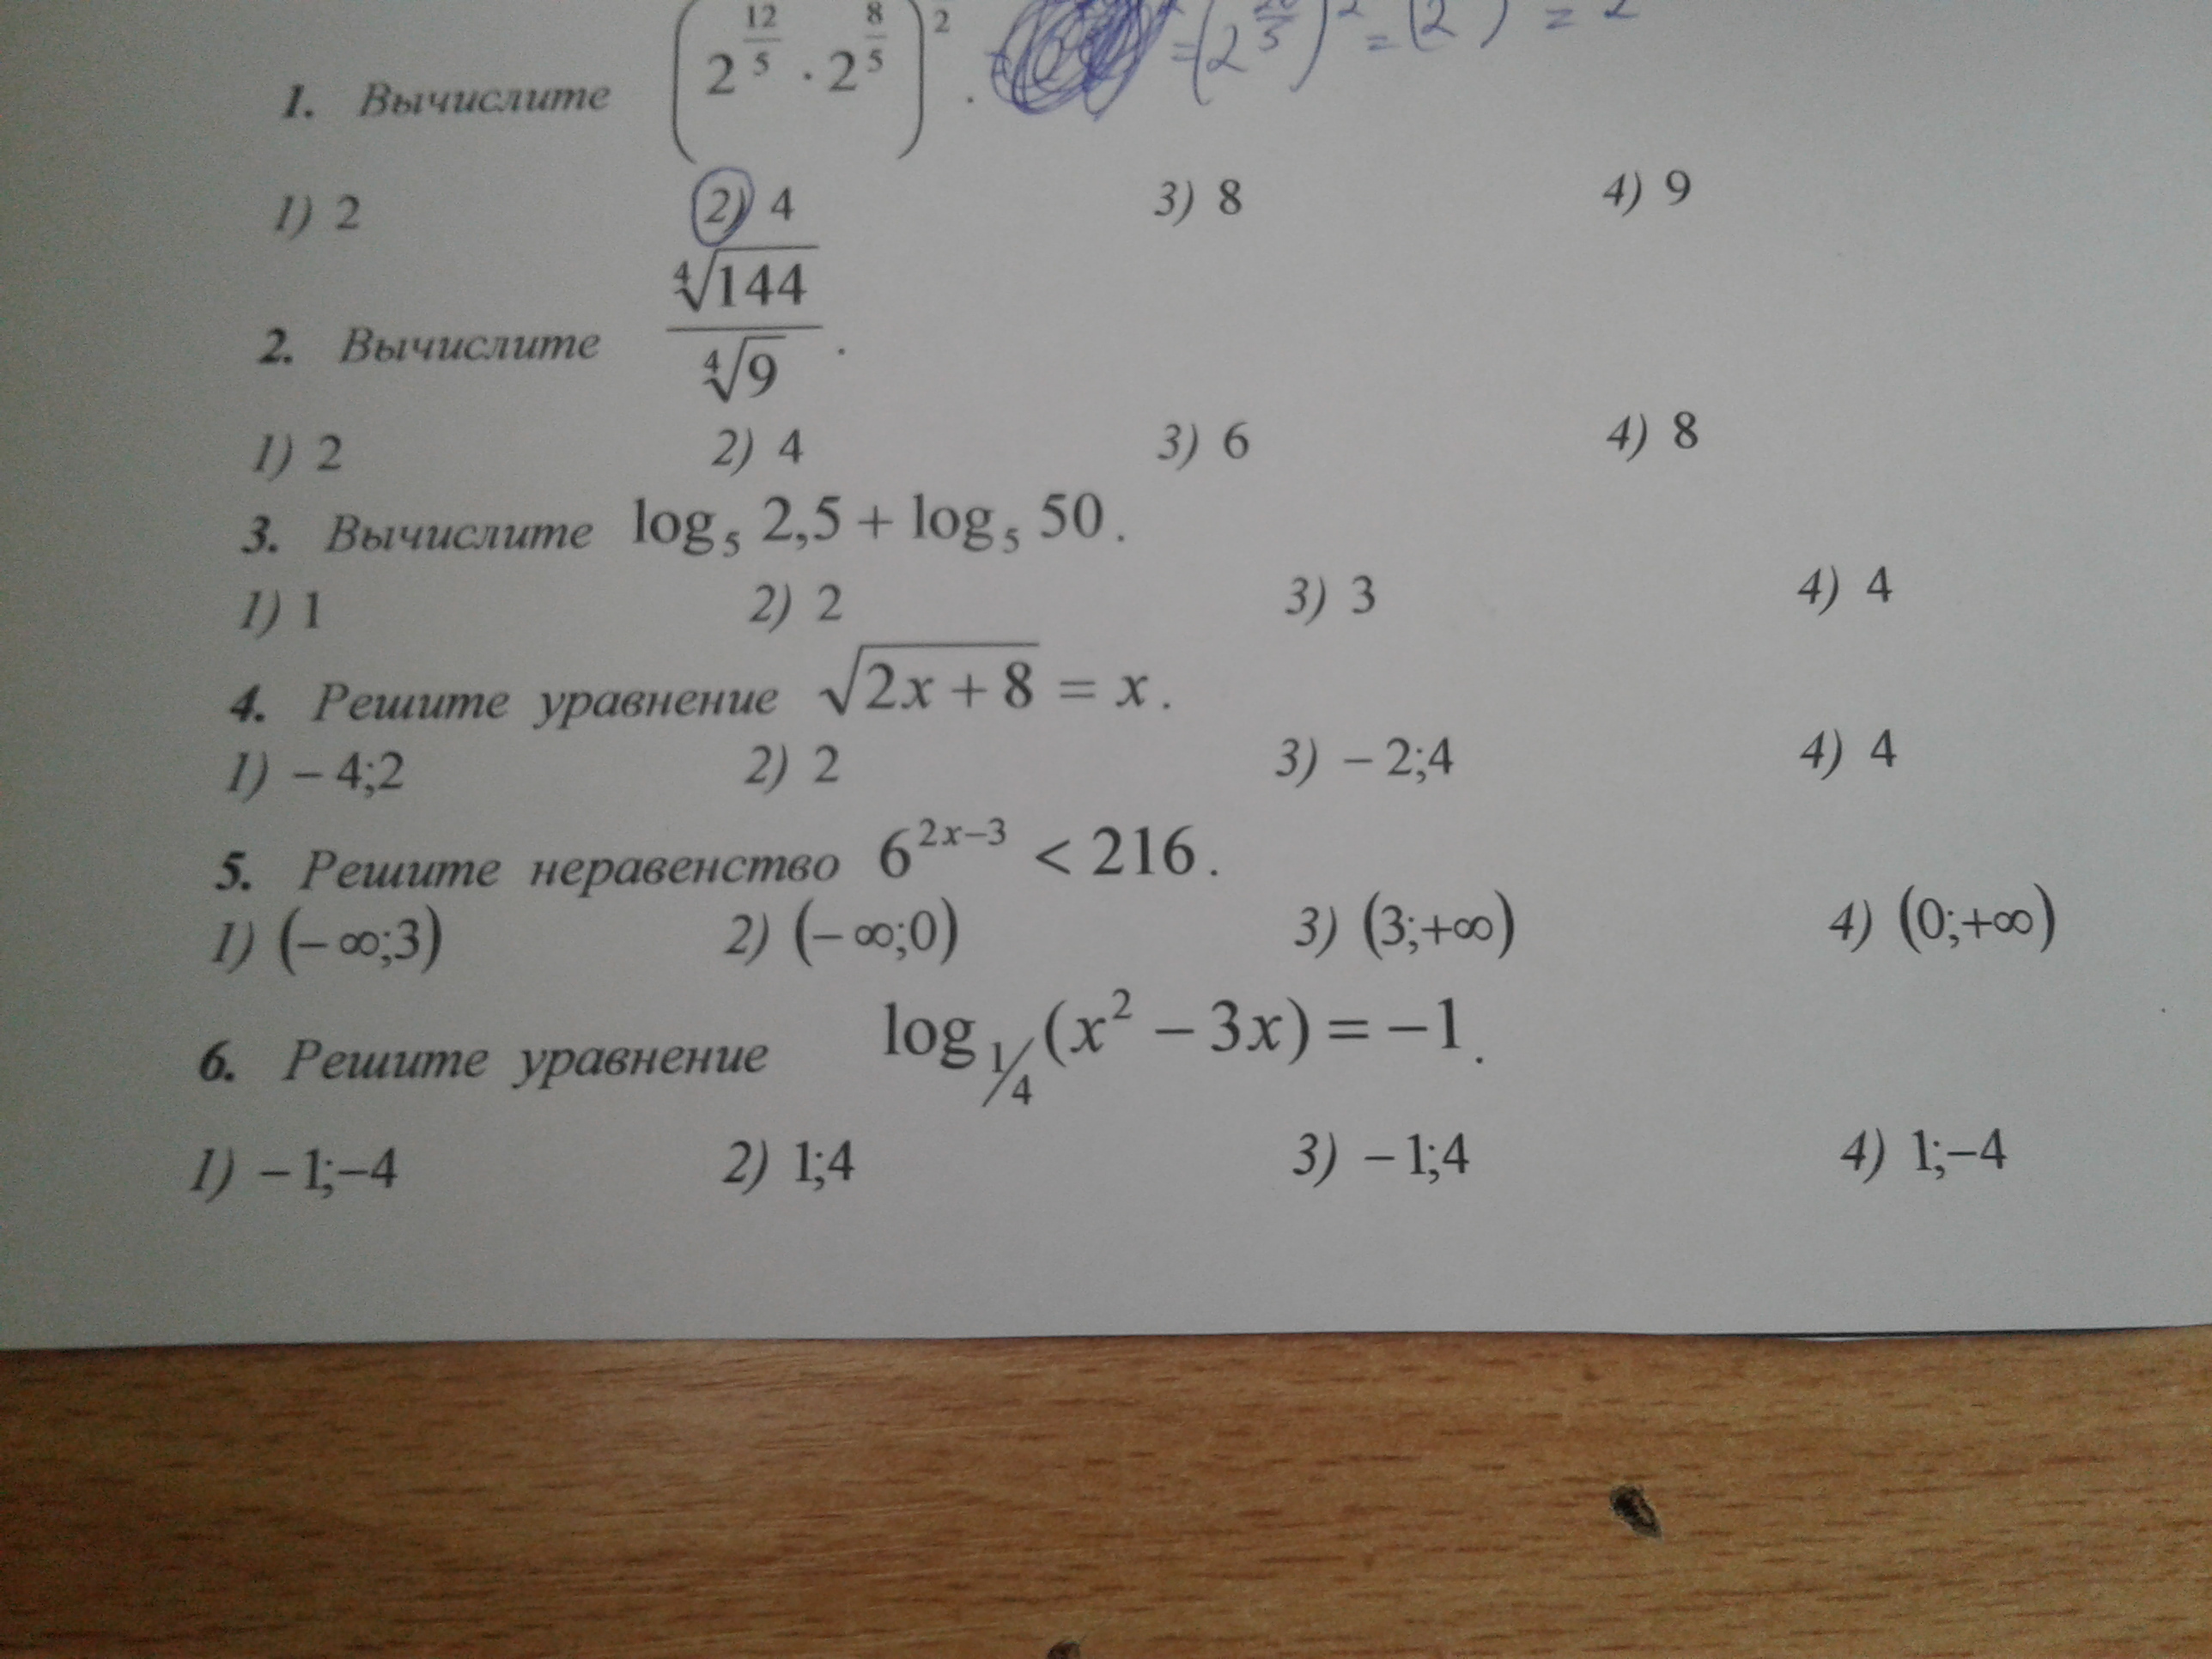 1. Вычислите (2^{12/5} · 2^{8/5})^{1/2}. =(2^{20/5})^{1/2} =(2 ) = 2
1) 2 2) 4 3) 8 4) 9
2. Вычислите ∜144 / ∜9 .
1) 2 2) 4 3) 6 4) 8
3. Вычислите log₅ 2,5 + log₅ 50 .
1) 1 2) 2 3) 3 4) 4
4. Решите уравнение √(2x + 8) = x .
1) – 4;2 2) 2 3) – 2;4 4) 4
5. Решите неравенство 6^{2x–3} < 216 .
1) (– ∞;3) 2) (– ∞;0) 3) (3;+∞) 4) (0;+∞)
6. Решите уравнение log_{1/4} (x² – 3x) = –1 .
1) – 1;–4 2) 1;4 3) – 1;4 4) 1;–4